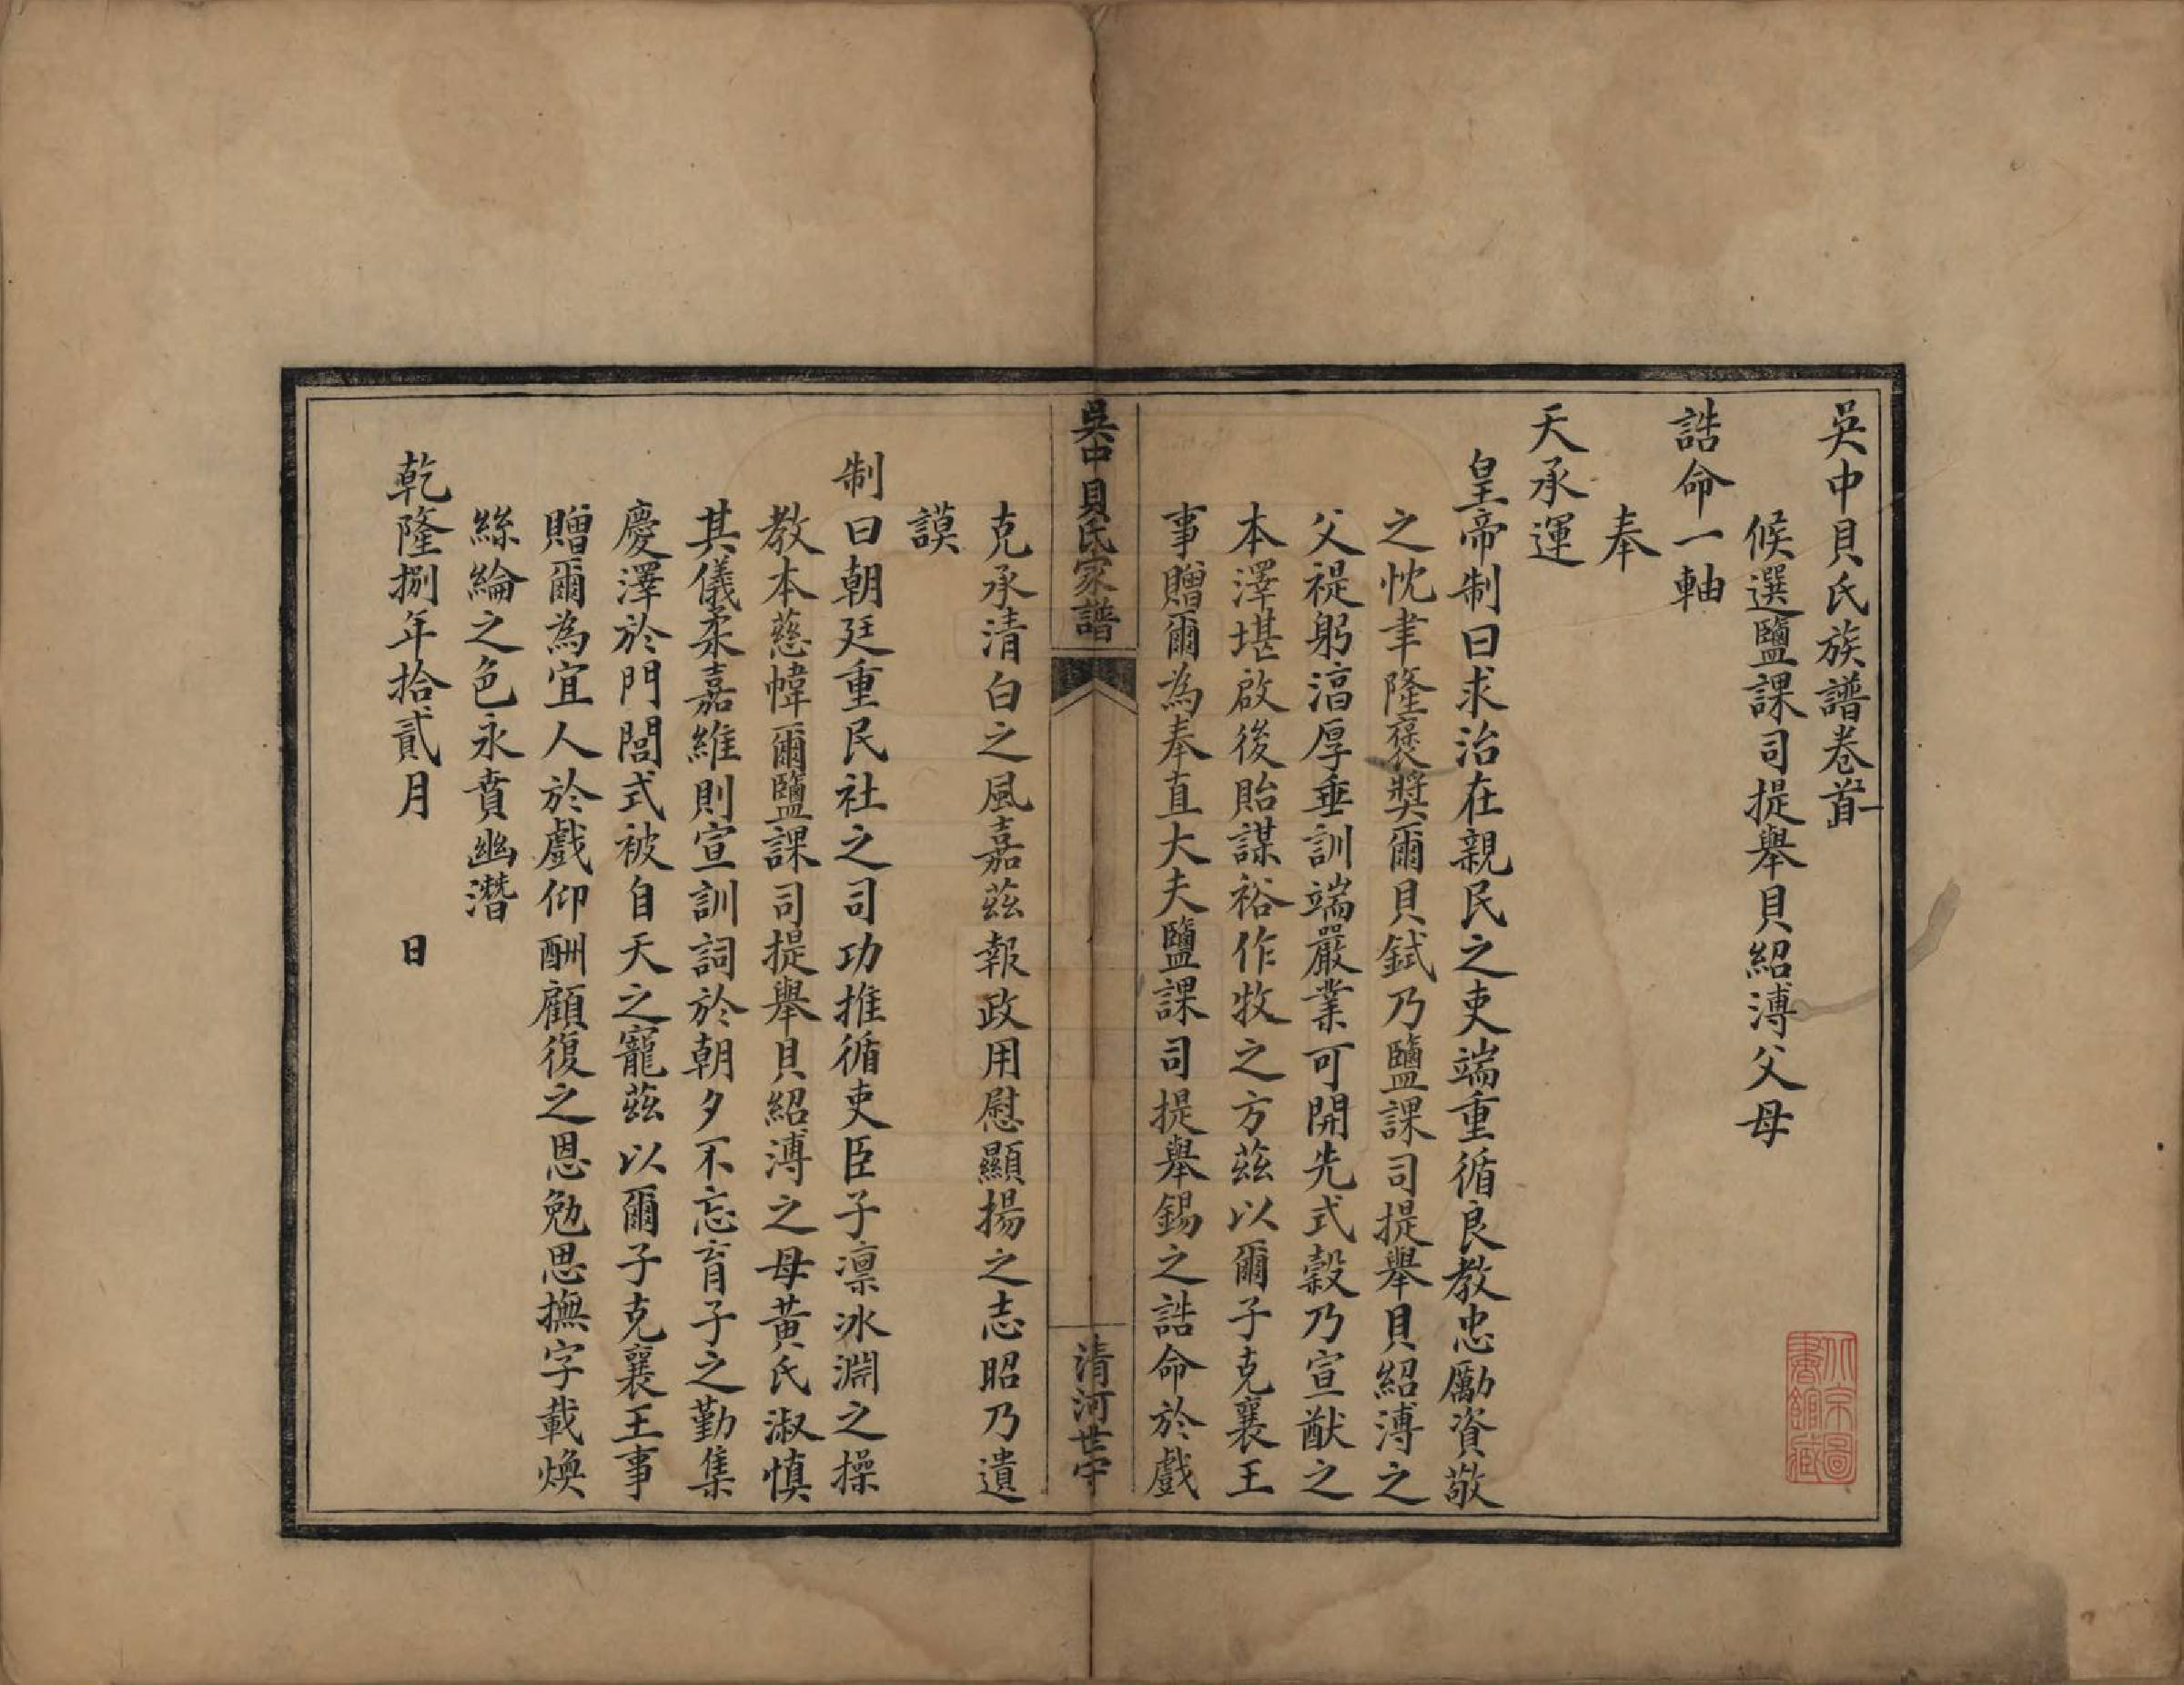 吳中貝氏族譜卷首一
候選鹽課司提舉貝紹溥父母
誥命一軸
奉
天承運
皇帝制曰求治在親民之吏端重循良教忠勵資敬
之忱聿隆褒奬爾貝鉽乃鹽課司提舉貝紹溥之
父禔躬湻厚垂訓端嚴業可開先式穀乃宣猷之
本澤堪啟後貽謀裕作牧之方茲以爾子克襄王
事贈爾為奉直大夫鹽課司提舉錫之誥命於戲
吳中貝氏家譜
清河世守
克承清白之風嘉茲報政用慰顯揚之志昭乃遺
謨
制曰朝廷重民社之司功推循吏臣子凛冰淵之操
教本慈幃爾鹽課司提舉貝紹溥之母黃氏淑慎
其儀柔嘉維則宣訓詞於朝夕不忘育子之勤集
慶澤於門閭式被自天之寵茲以爾子克襄王事
贈爾為宜人於戲仰酬顧復之恩勉思撫字載煥
絲綸之色永賁幽潛
乾隆捌年拾貳月 日